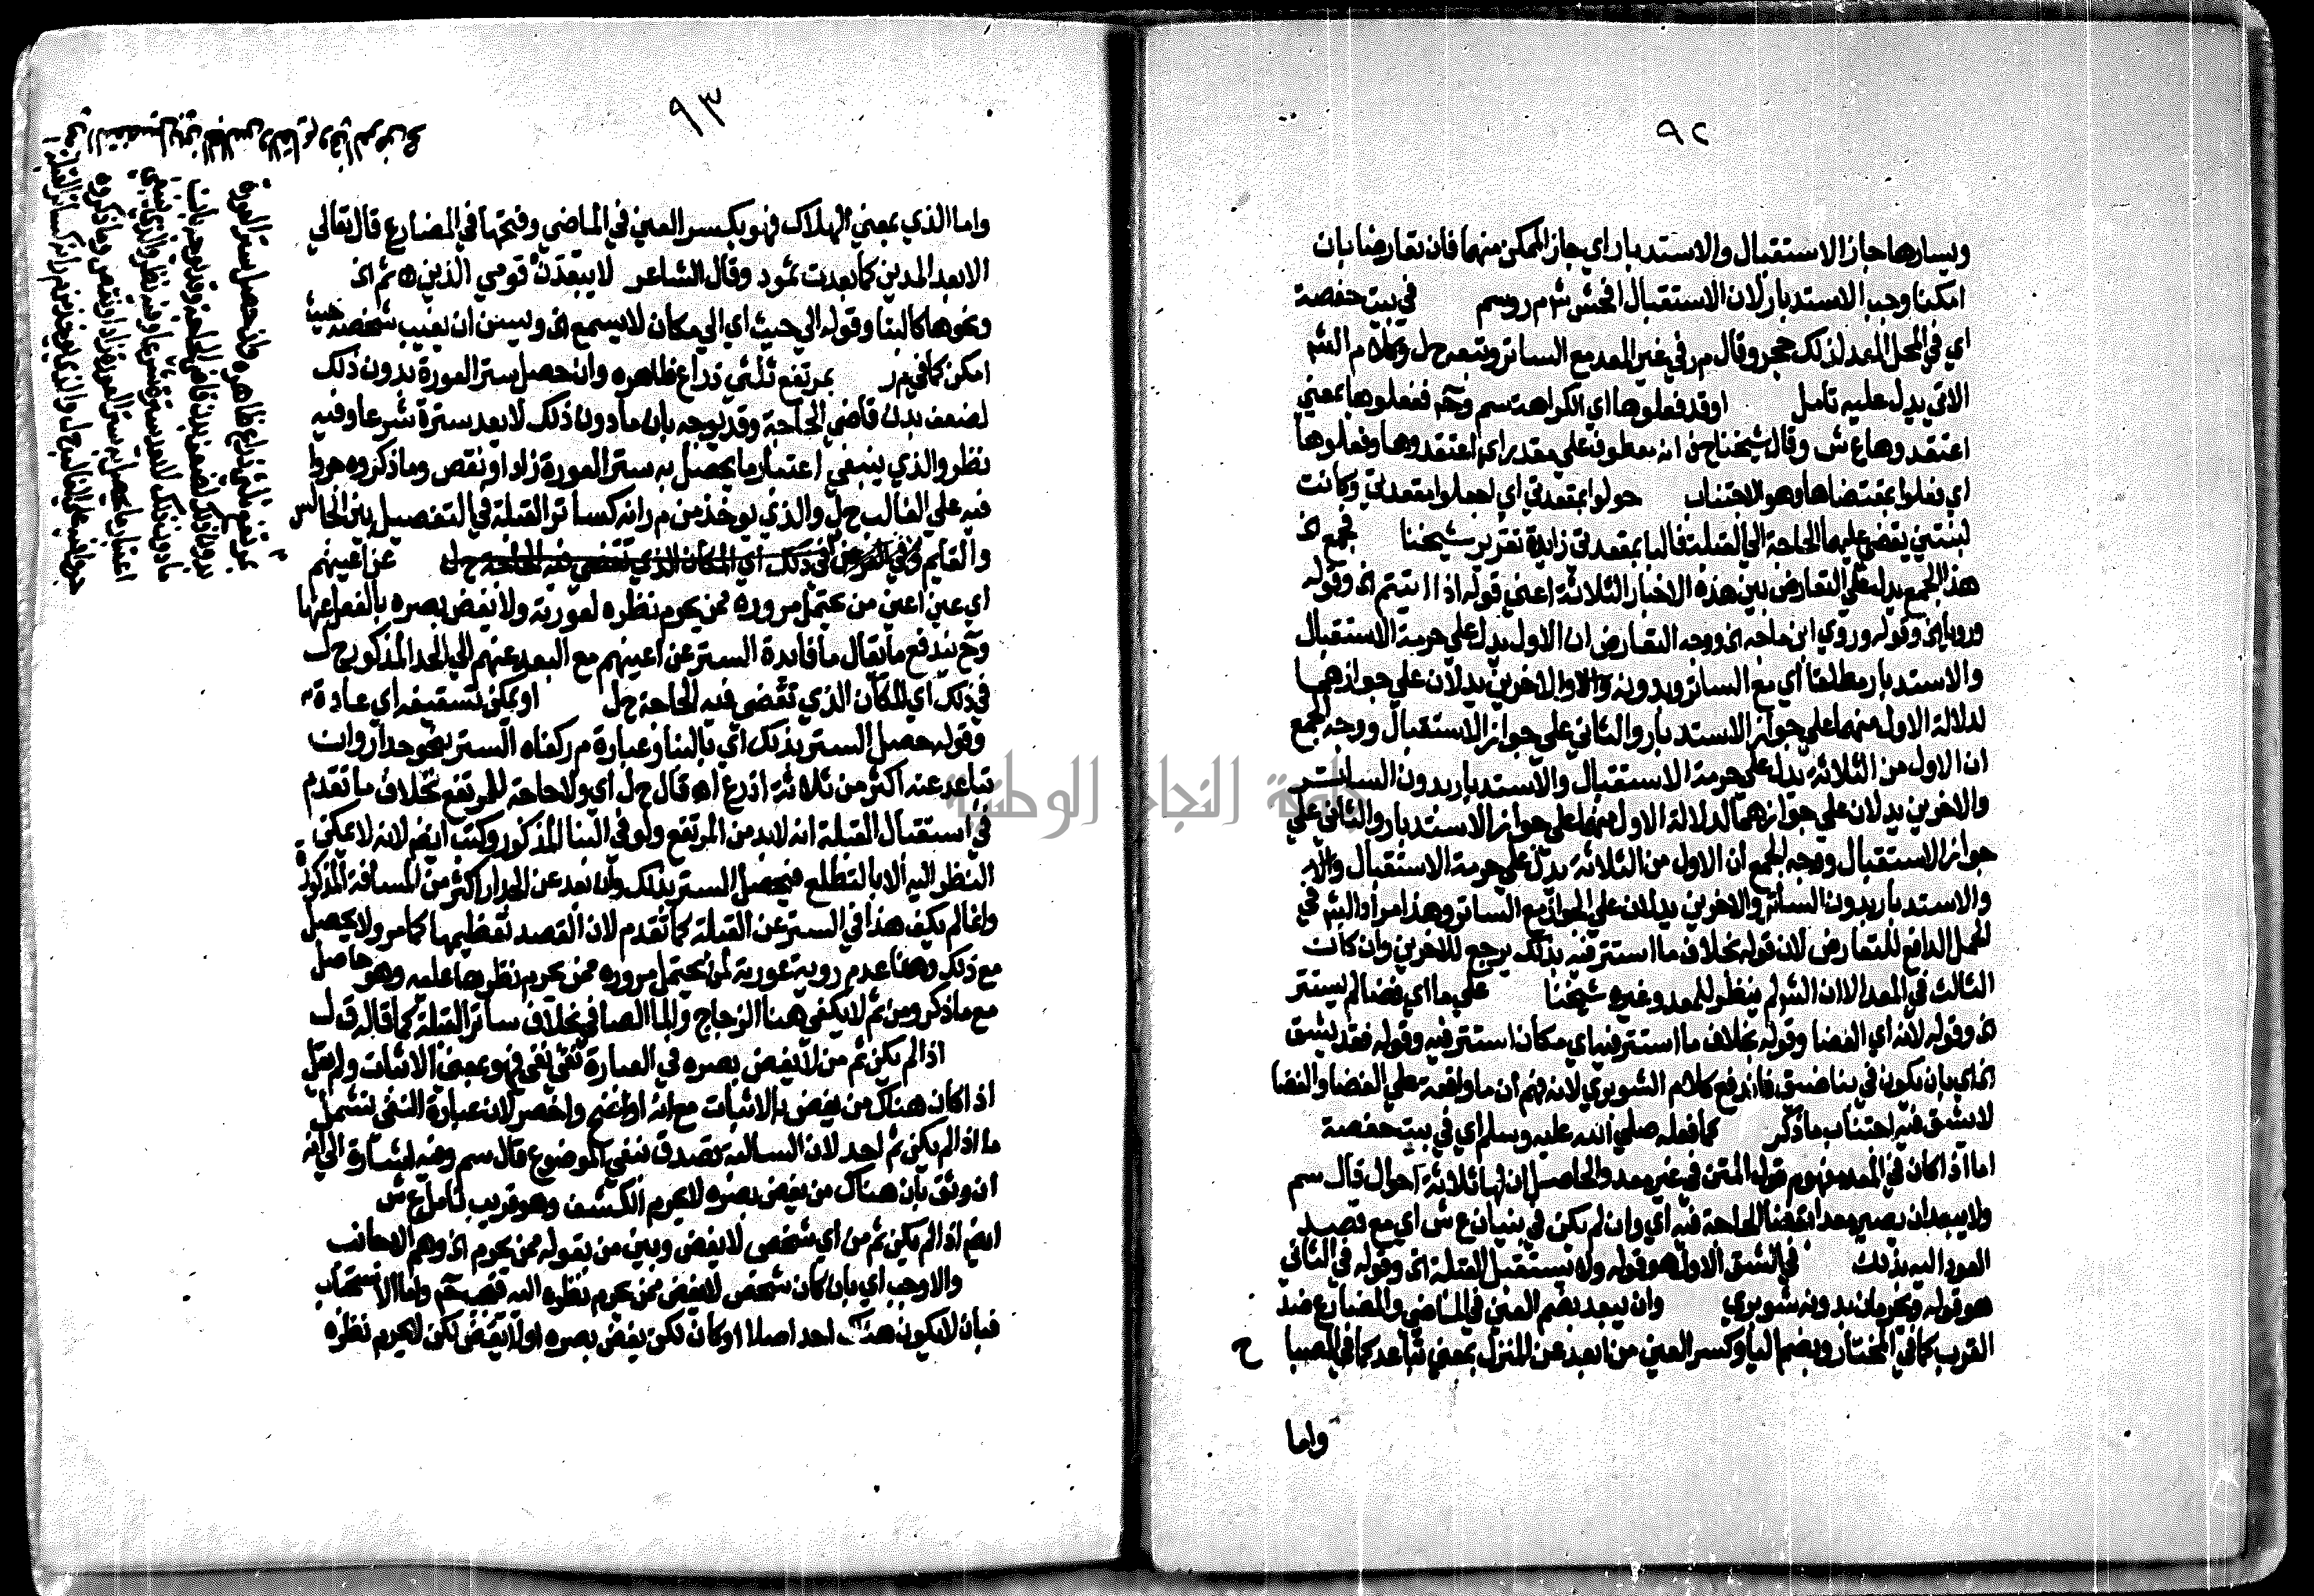 ٩٢
ويسارها جاز الاستقبال والاستدبار اي جاز الممكن منهما فان تعارضا بان
امكنا وجب الاستدبار لان الاستقبال افحش ش م ر وسم في بيت حفصة
اي في المحل المعد لذلك حجر وقال م ر في غير المعد مع الساتر وتبعه ح ل وكلام الش
الاتي يدل عليه تامل اوقد فعلوها اي الكراهة سم وح فعلوها بمعني
اعتقدوها ع ش وقال شيخنا ح ف انه معطوف علي مقدر اي اعتقدوها وفعلوها
اي فعلوا بمقتضاها وهو الاجتناب حولوا بمقعدتي اي اجعلوا مقعدتي وكانت
لبنتين يقضي عليهما الحاجة الي القبلة فالبا بمقعدتي زايدة تقرير شيخنا فجمع الخ
هذا الجمع يدل علي التعارض بين هذه الاخبار الثلاثة اعني قوله اذا اتيتم الخ وقوله
ورويا الخ وقوله وروي ابن ماجه الخ ووجه التعارض ان الاول يدل علي حرمة الاستقبال
والاستدبار مطلقا اي مع الساتر وبدونه والاخرين يدلان علي جوازهما
لدلالة الاول منهما علي جواز الاستدبار والثاني علي جواز الاستقبال ووجه الجمع
ان الاول من الثلاثة يدل علي حرمة الاستقبال والاستدبار بدون الساتر
والاخرين يدلان علي جوازهما لدلالة الاول منهما علي جواز الاستدبار والثاني علي
جواز الاستقبال ووجه الجمع ان الاول من الثلاثة يدل علي حرمة الاستقبال
والاستدبار بدون الساتر والاخرين يدلان علي الجواز مع الساتر وهذا مراد الش في
الحمل الدافع للتعارض لان قوله بخلاف ما استتر فيه بذلك يرجع للاخرين وان كانت
الثالث في المعد الا ان الش لم ينظر للمعد وغيره شيخنا علي ما اي فضا لم يستتر
الخ وقوله لانه اي الفضا وقوله بخلاف ما استتر فيه اي مكان استتر فيه وقوله فقد يشق
الخ اي بان يكون في بنا ضيق فاندفع كلام الشوبري لانه فهم ان ما واقعة علي الفضا والفضا
لا يشق فيه اجتناب ما ذكر كما فعله صلي الله عليه وسلم اي في بيت حفصة
اما اذا كان في المعد مفهوم قوله المتن في غير معد والحاصل ان لها ثلاثة احوال قال سم
ولا يبعد ان يصير معدا بقضا الحاجة فيه اي وان لم يكن في بنيان ع ش اي مع قصد
العود اليه بذلك في الشق الاول هو قوله ولا يستقبل القبلة الخ وقوله في الثاني
هو قوله ويحرمان بدونه شوبري وان يبعد بضم العين في الماضي والمضارع ضد
القرب كما في المختار وبضم اليا وكسر العين من ابعد عن المنزل بمعني تباعد كما في المصبا
ح
واما
٩٣
واما الذي بمعني الهلاك فهو بكسر العين في الماضي وفتحها في المضارع قال تعالي
الا بعدا لمدين كما بعدت ثمود وقال الشاعر لا يبعدن قومي الذين هم الخ
ونحوها كالبنا وقوله الي حيث اي الي مكان لا يسمع الخ ويسن ان يغيب شخصه حيث
امكن كما في م ر بمرتفع ثلثي ذراع ظاهره وان حصل ستر العورة بدون ذلك
لضعف بدن قاضي الحاجة وقد يوجه بان ما دون ذلك لا يعد سترة شرعا وفيه
نظر والذي ينبغي اعتبار ما يحصل به ستر العورة زاد او نقص وما ذكروه جروا
فيه علي الغالب ح ل والذي يوخذ من م ر انه كساتر القبلة في التفصيل بين الجالس
والقايم في ذلك اي المكان الذي تقضي فيه الحاجة ح ل عن اعينهم
اي عين اعين من يحتمل مروره ممن يحرم نظره لعورته ولا يغض بصره بالفعل عنها
وح يندفع ما يقال ما فايدة الستر عن اعينهم مع البعد عنهم الي الحد المذكور ح ل
في ذلك اي المكان الذي تقضي فيه الحاجة ح ل او يمكن تسقيفه اي عادة
وقوله حصل الستر بذلك اي بالبنا وعبارة م ر كفاه الستر بنحو جدار وان
تباعد عنه اكثر من ثلاثة اذرع اه قال ح ل اي ولا حاجة للمرتفع بخلاف ما تقدم
في استقبال القبلة انه لابد من المرتفع ولو في البنا المذكور وكتب ايضا لانه لا يمكن
النظر اليه الا بالتطلع فيحصل الستر بذلك وان بعد عن الجدار اكثر من المسافة المذكورة
وانما لم يكف هذا في الستر عن القبلة كما تقدم لان القصد تعظيمها كما مر ولا يحصل
مع ذلك وهنا عدم روية عورته لمن يحتمل مروره ممن يحرم نظرها عليه وهو حاصل
مع ما ذكر ومن ثم لا يكفي هنا الزجاج والما الصافي بخلاف ساتر القبلة كما قاله ق ل
اذا لم يكن ثم من لا يغض بصره في العبارة نفي نفي فهو بمعني الاثبات ولم يقل
اذا كان هناك من يغض بالاثبات مع انه اوضح واخصر لان عبارة النفي تشمل
ما اذا لم يكن ثم احد لان السالبة تصدق بنفي الموضوع قال سم وفيه اشارة الي انه
ان وثق بان هناك من يغض بصره لا يحرم الكشف وهو قريب تامل ع ش
ايضا اذا لم يكن ثم من اي شخص لا يغض وبين من بقوله ممن يحرم الخ وهم الاجانب
والا وجب اي بان كان شخص لا يغض ممن يحرم نظره اليه واما الاستحباب
فبان لا يكون هناك احد اصلا او كان لكن يغض بصره او لا يغض لكن لا يحرم نظره
بمرتفع ثلثي ذراع ظاهره وان حصل ستر العورة
بدون ذلك لضعف بدن قاضي الحاجة وقد يوجه بان
ما دون ذلك لا يعد سترة شرعا وفيه نظر والذي ينبغي
اعتبار ما يحصل به ستر العورة زاد او نقص وما ذكروه
جروا فيه علي الغالب ح ل والذي يوخذ من م ر انه كساتر القبلة